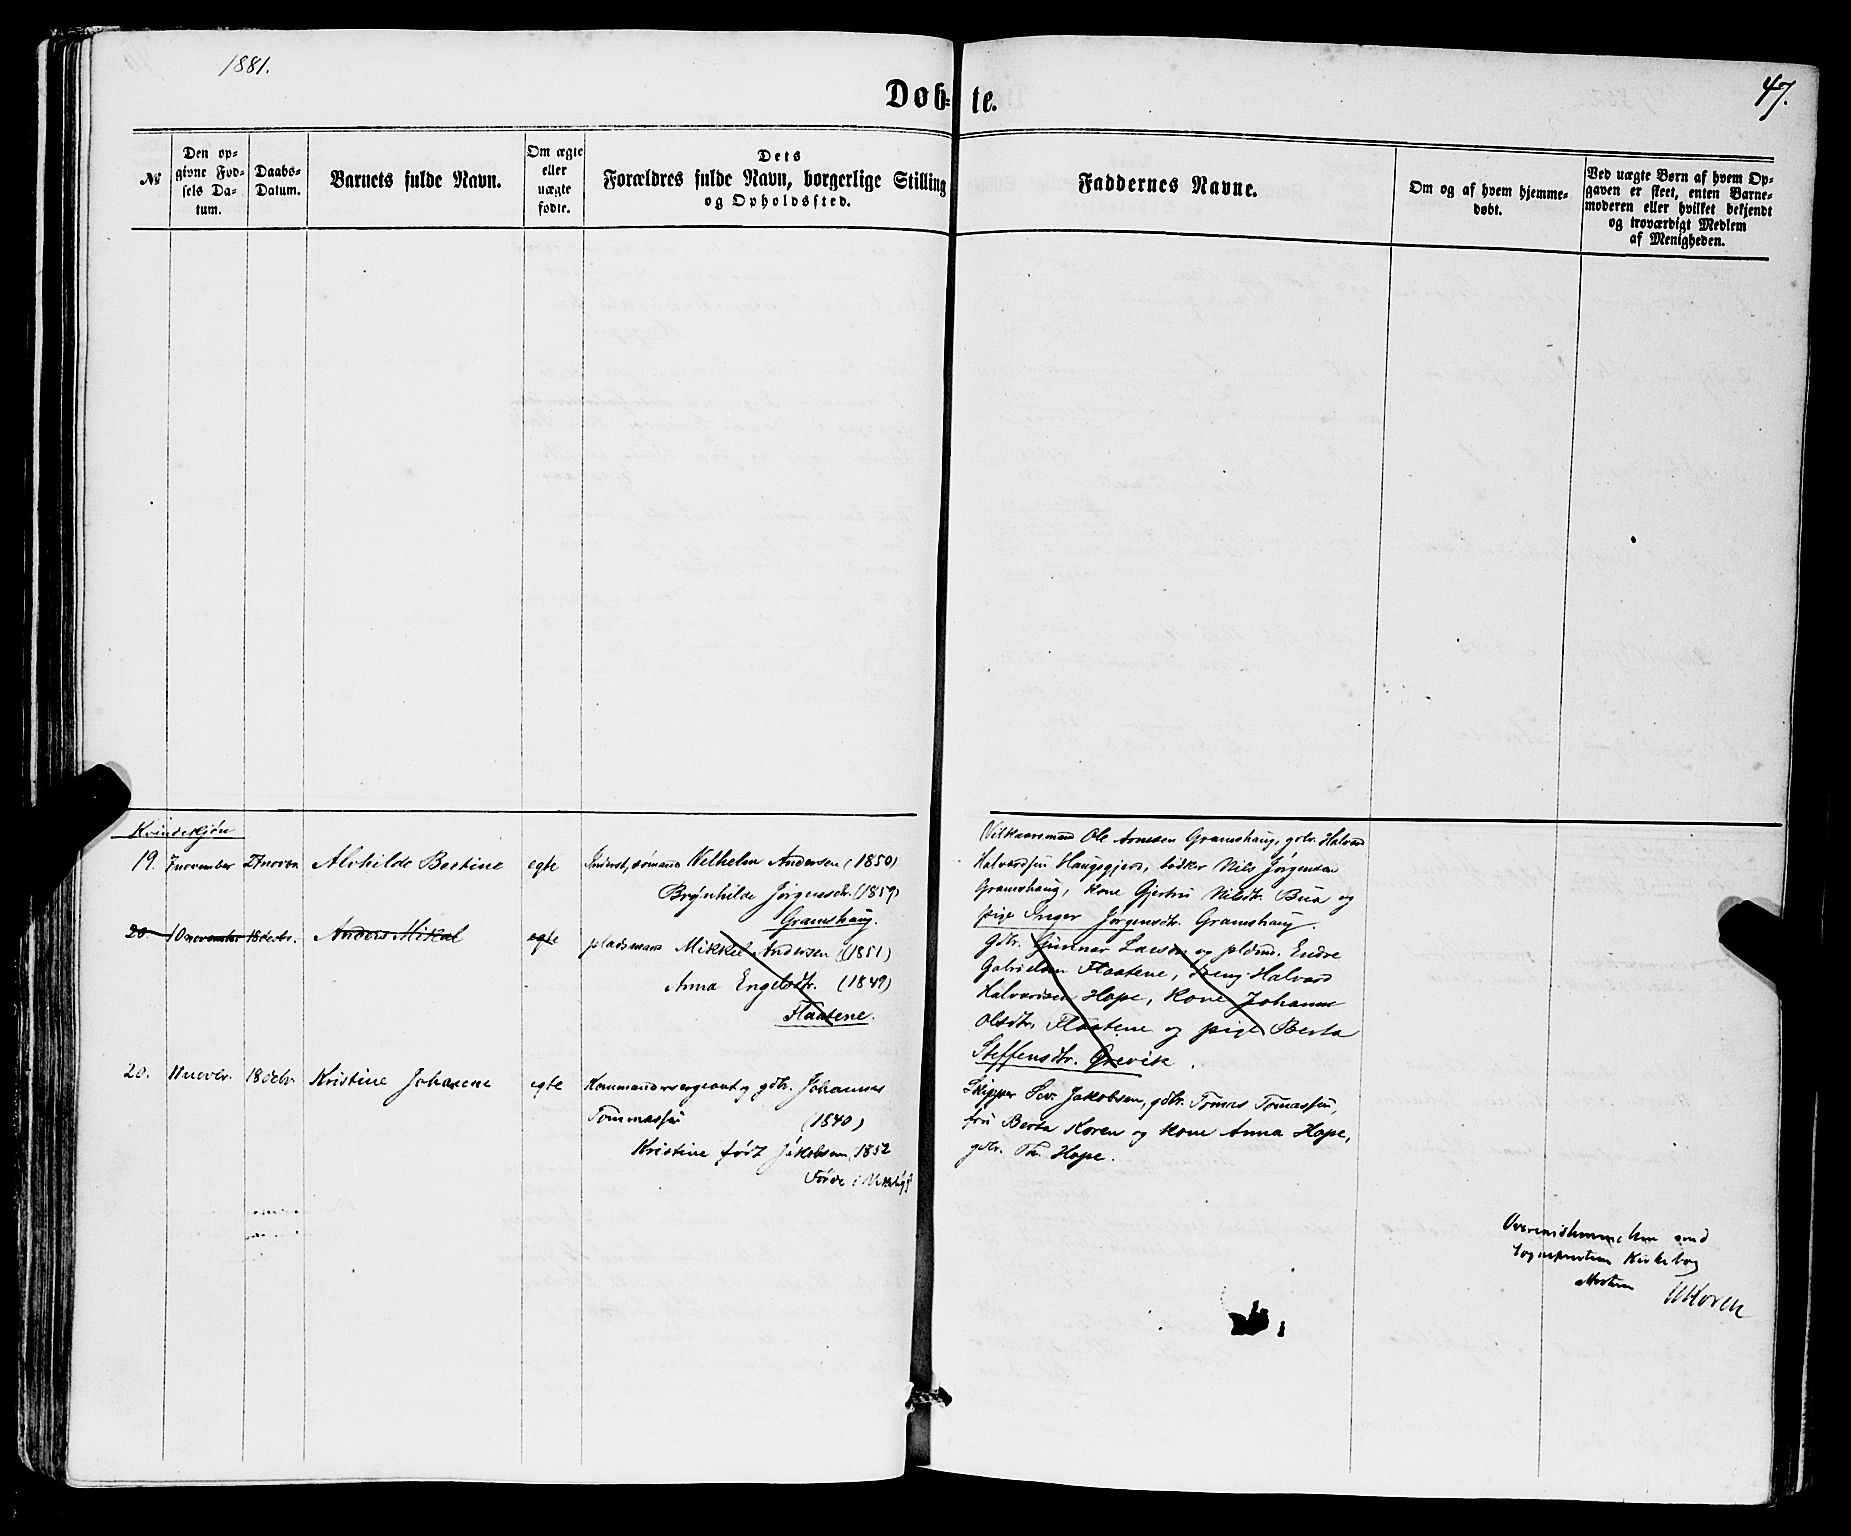 1881.
47.
Døb= te.
№
Den op-
givne Fød-
sels Da-
tum.
Daabs-
Datum.
Barnets fulde Navn.
Om ægte
eller
uægte
fødte.
Dets
Forældres fulde Navn, borgerlige Stilling
og Opholdssted.
Faddernes Navne.
Om og af hvem hjemme-
døbt.
Ved uægte Børn af hvem Op-
gaven er skeet, enten Barne-
moderen eller hvilket bekjendt
og troværdigt Medlem
af Menigheden.
Kvindekjøn
19. 7 november 27 novbr Alvhilde Bertine egte
sømand Vilhelm Andersen (1850)
Brynhilde Jørgensdtr. (1859)
Gramshaug.
Vilkaarsmand Ole Arnesen Gramshaug, gdbr. Halvard
Halvardsen Haugsgjerd, bødker Nils Jørgensen
Gramshaug, kone Gjertru Nilsdtr. Bua og
pige Inger Jørgensdtr. Gramshaug.
20. 10 november 18 decbr. Anders Mikal egte
pladsmand Mikkel Andersen (1851)
Anna Engelsdtr. (1849)
Flaatene.
gdbr. Gunnar Larsen og pldmd. Endre
Gabrielsen Flaatene, dreng Halvard
Halvardsen Hope, kone Johanne
Olsdtr. Flaatene og pige Berta
Steffensdtr. Ørevik.
20. 11 novbr. 18 decbr. Kristine Johanne egte
Kommandersergeant og gdbr. Johannes
Tommassen (1840)
Kristine født Jakobsen, 1852
Førde i Vikebygd
Skipper Siv. Jakobsen, gdbr. Tomas Tomassen,
fru Berta Koren og kone Anna Hope,
gdbr. Th. Hope.
Overensstemmelse med
Sognepræstens Kirkebog
attesteres
W Koren